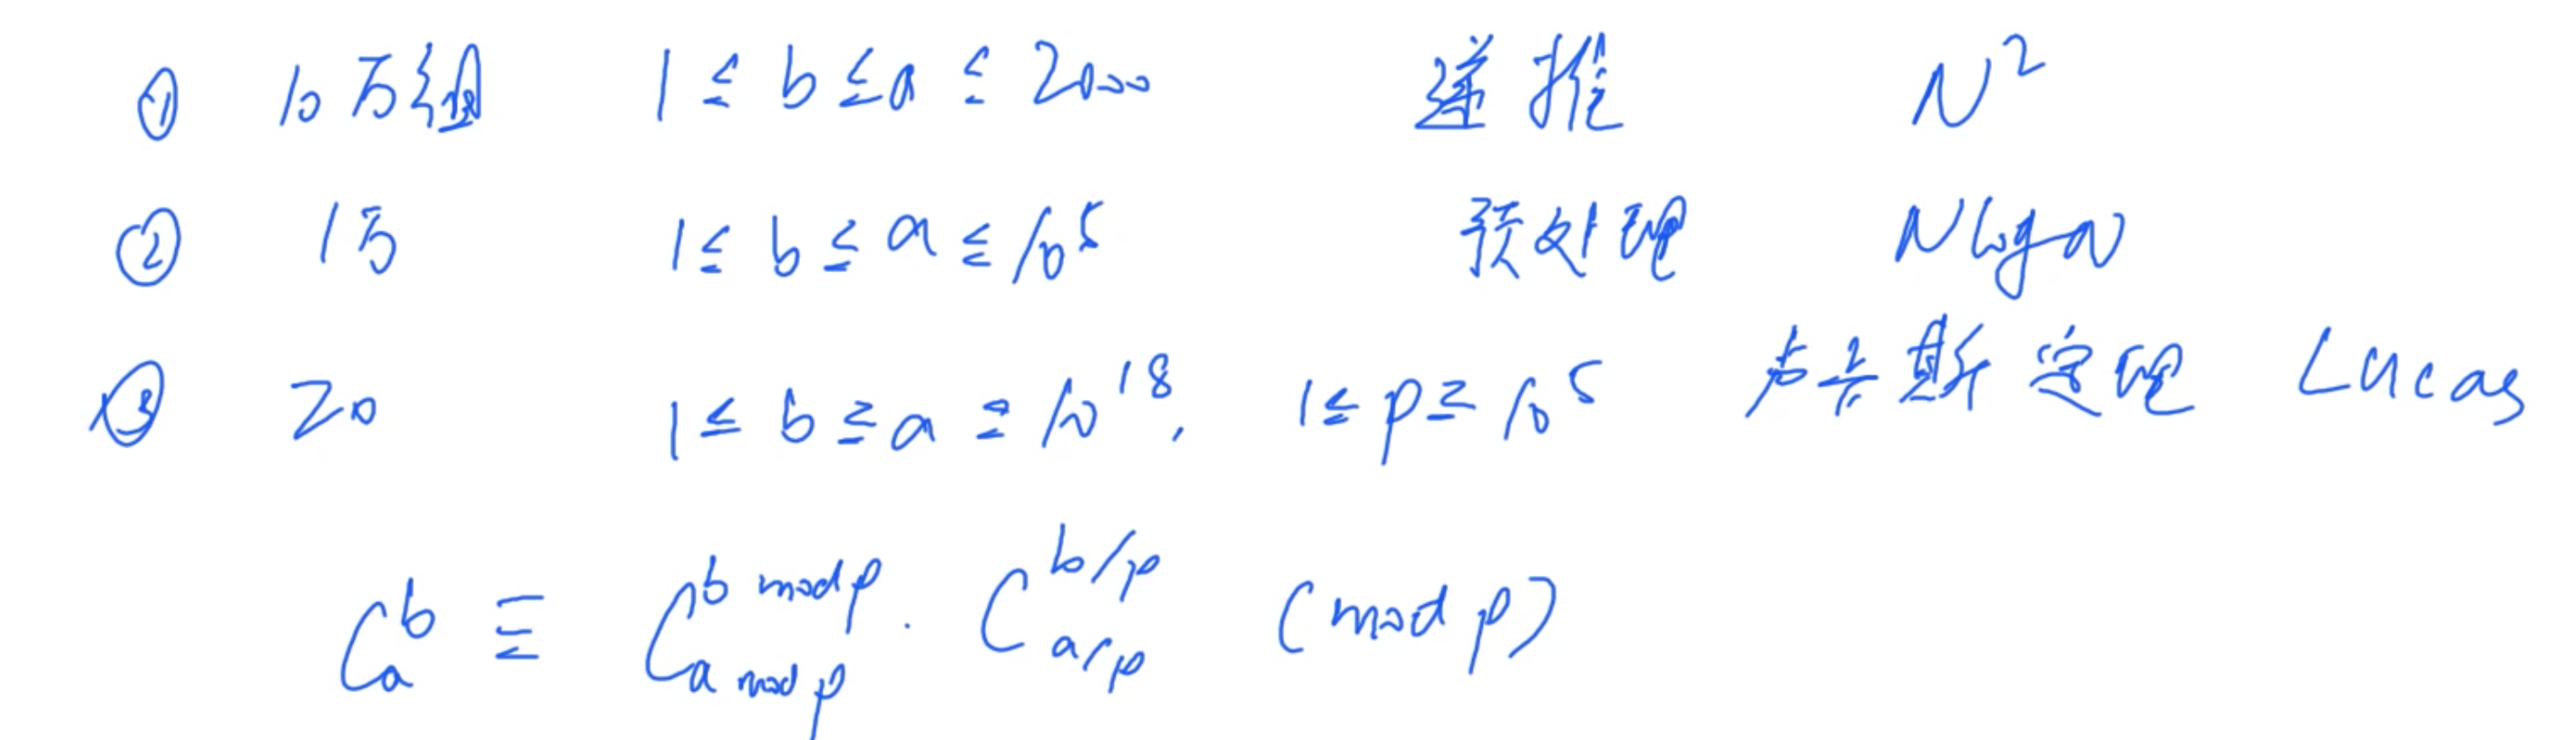 ① 10万组 1 ≤ b ≤ a ≤ 2000 递推 N²
② 1万 1 ≤ b ≤ a ≤ 10⁵ 预处理 NlogN
③ 20 1 ≤ b ≤ a ≤ 10¹⁸, 1 ≤ p ≤ 10⁵ 卢卡斯定理 Lucas
C_a^b ≡ C_{a mod p}^{b mod p} · C_{a/p}^{b/p} (mod p)